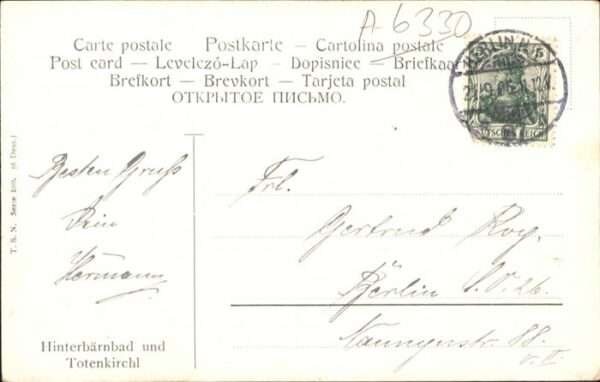 A 6330
Carte postale Postkarte – Cartolina postale
Post card – Levelező-Lap – Dopisnice – Briefkaart
Brefkort – Brevkort – Tarjeta postal
ОТКРЫТОЕ ПИСЬМО.
BERLIN
DEUTSCHES REICH
T. S. N. Serie
Besten Gruß
Dein
Hermann
Frl.
Gertrud
Berlin S.O. 26.
Naunynstr. 88.
v. II.
Hinterbärnbad und
Totenkirchl